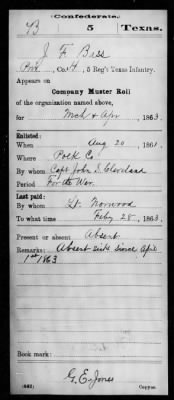 Confederate.
B 5 Texas.
J. F. Biss
Pvt, Co. H, 5 Reg't Texas Infantry.
Appears on
Company Muster Roll
of the organization named above,
for Mch & Apr, 1863.
Enlisted:
When Aug 20, 1861.
Where Polk Co
By whom Capt John S. Cleveland
Period For the War.
Last paid:
By whom Lt. Norwood
To what time Feby 28, 1863.
Present or absent Absent
Remarks: Absent sick since April
1st 1863
Book mark:
G. E. Jones
(642) Copyist.